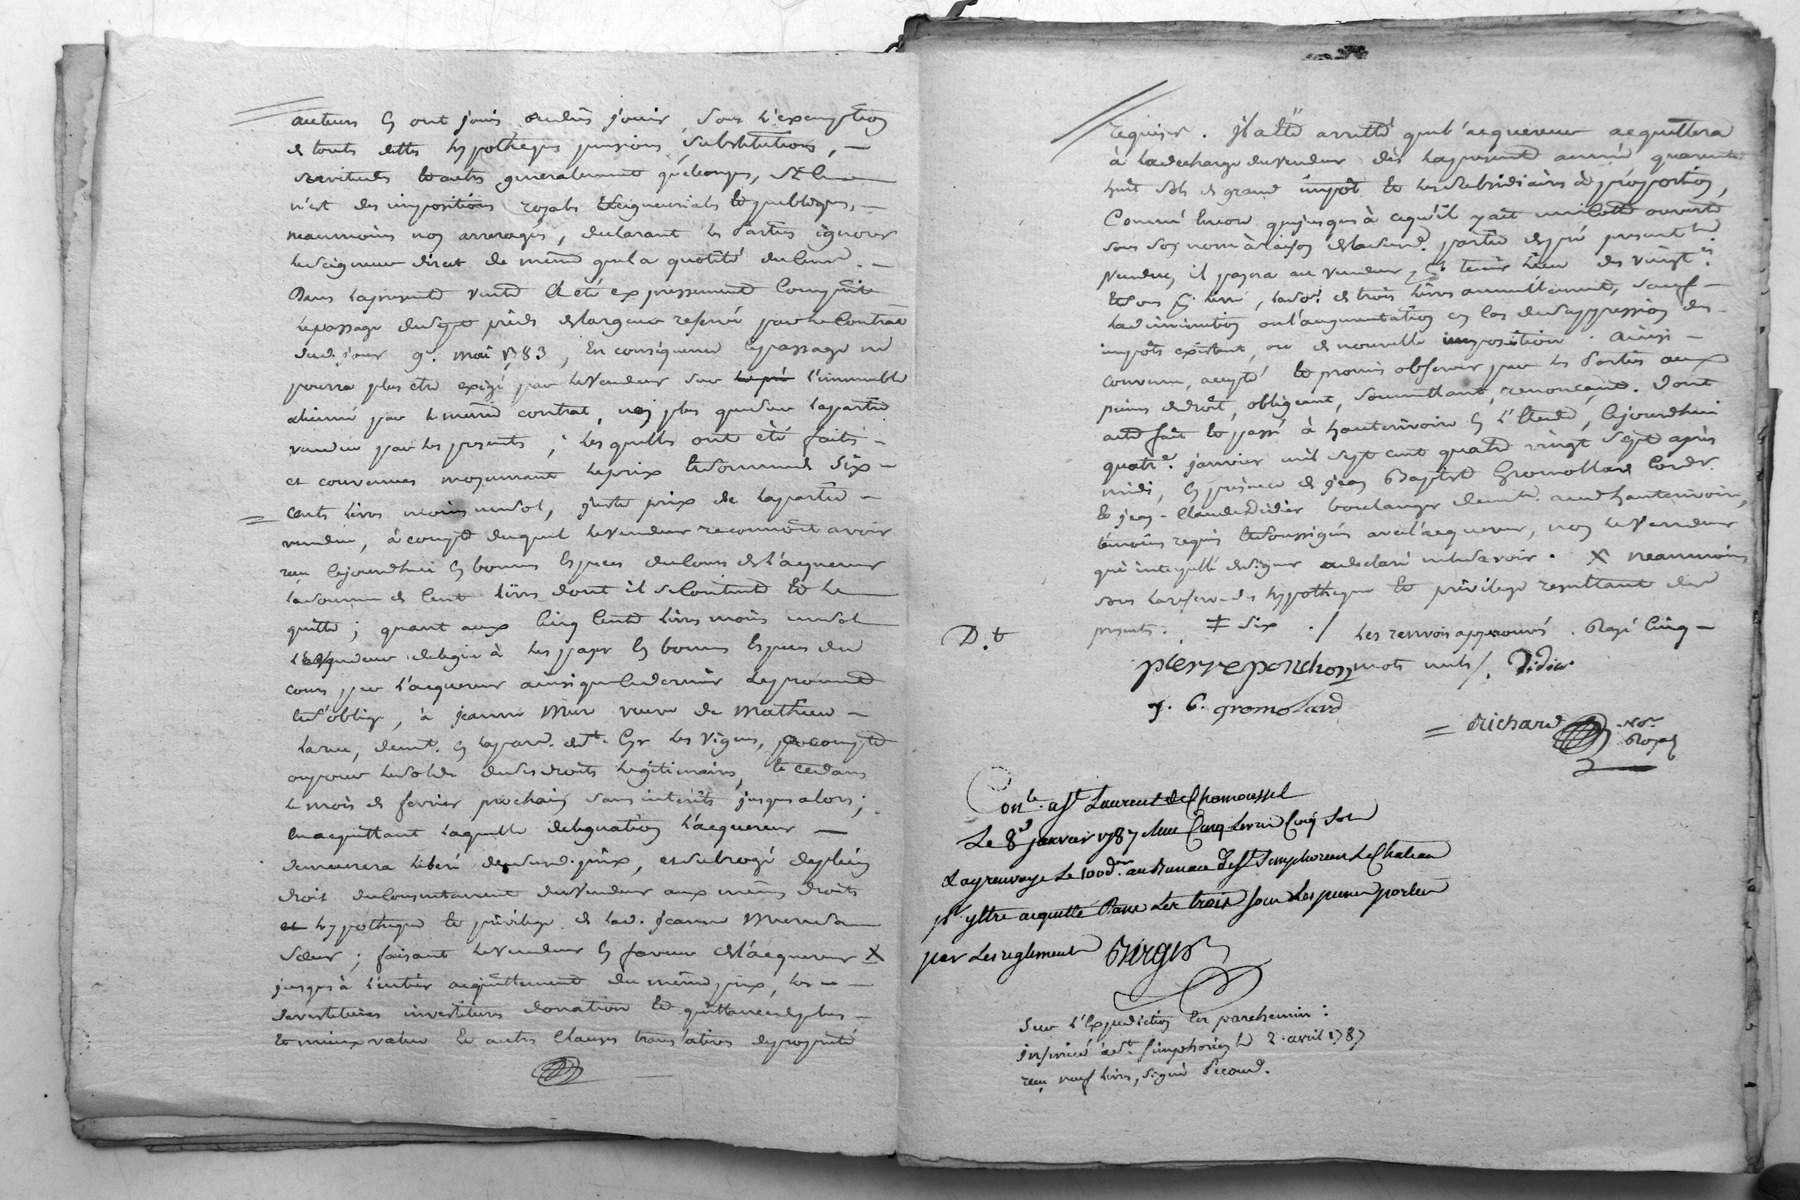 auteurs en ont joui ou dû jouir, sous l'exemption
de touts dettes hypotheques pensions substitutions,
servitudes et autres generalement quelconques, si ce
n'est des impositions royals et seigneurials et publiques,
neanmoins non arreragés, declarant les Parties ignorer
le seigneur direct de même que la quotité du cens.
Dans la presente vente a été expressement compris
le passage de sept pieds de largeur reservé par le Contrat
dud. jour 9. mai 1783, en consequence le passage ne
pourra plus être exigé par le vendeur sur le pré l'immeuble
aliené par le même contrat, non plus que sur la partie
vendue par les presents; lesquelles ont été faits
et convenues moyennant le prix et somme de six
cents livres moins un sol, juste prix de la partie
vendue, à compte duquel le vendeur reconnoit avoir
reçu cejourdhui en bonnes especes du cours de l'acquereur
la somme de cent livres dont il se contente et le
quitte; quant aux cinq cents livres moins un sol
le vendeur delegue à les payer en bonnes especes du
cours, par l'acquereur ainsi que ce dernier le promet
et s'oblige, à jeanne Mure veuve de Mathieu
larue, demt. en la par. de st. Cyr les Vignes, à compte
ou pour le solde de ses droits legitimaires, et ce dans
le mois de fevrier prochain sans interêts jusques alors;
en acquittant laquelle delegation l'acquereur
demeurera liberé de sond. prix, et subrogé de plein
droit du consentement du vendeur aux mêmes droits
et hypotheque et privilege de lad. jeanne Mure sa
sœur; faisant le vendeur en faveur de l'acquereur X
jusques à l'entier acquittement du même prix, les
devestitures investitures donation et quittance de plus
et mieux value et autres clauses translatives de propriété
requises. Il a été arretté que l'acquereur acquittera
à la decharge du vendeur dès la presente année quarante
huit sols de grand impôt et les subsidiaires à proportion,
Comme encore que jusques à ce qu'il y ait une cotte ouverte
sous son nom à raison de la susd. partie de pré presentemt.
vendue, il payera au vendeur, pr. tenir lieu des vingt.es
et sous pr. livre, la so.e de trois livres annuellement, sauf
la diminution ou l'augmentation en cas de suppression des
impôts existant, ou de nouvelle imposition. Ainsi
convenu, accepté et promis observer par les Parties aux
peines de droit, obligeant, soumettant, renonçant. Dont
acte fait et passé à hauterivoire en l'Etude, cejourdhui
quatre. janvier mil sept cent quatre vingt sept après
midi, en presence de jean Baptiste Gromollard Cordr.
et jean-Claude Didier boulanger demt. aud hauterivoire,
témoins requis et soussignés avec l'acquereur, non le vendeur
qui interpellé de signer a declaré ne le savoir. X neanmoins
sous la reserve des hypotheque et privilege resultant des
presents. ‡ six ./. les renvois approuvés. Rayé cinq
D. t
pierre ponchon mots nuls /. Didier
j. b. gromolard
= Richard Nore. Royal
Conle. a St. Laurent de Chamousset
Le 8e janvier 1787 reçu Cinq Livres Cinq Sols
par Les reglement
Sur l'Expedition en parchemin:
insinué à st. simphorien le 2. avril 1787
reçu neuf livres, signé Second.